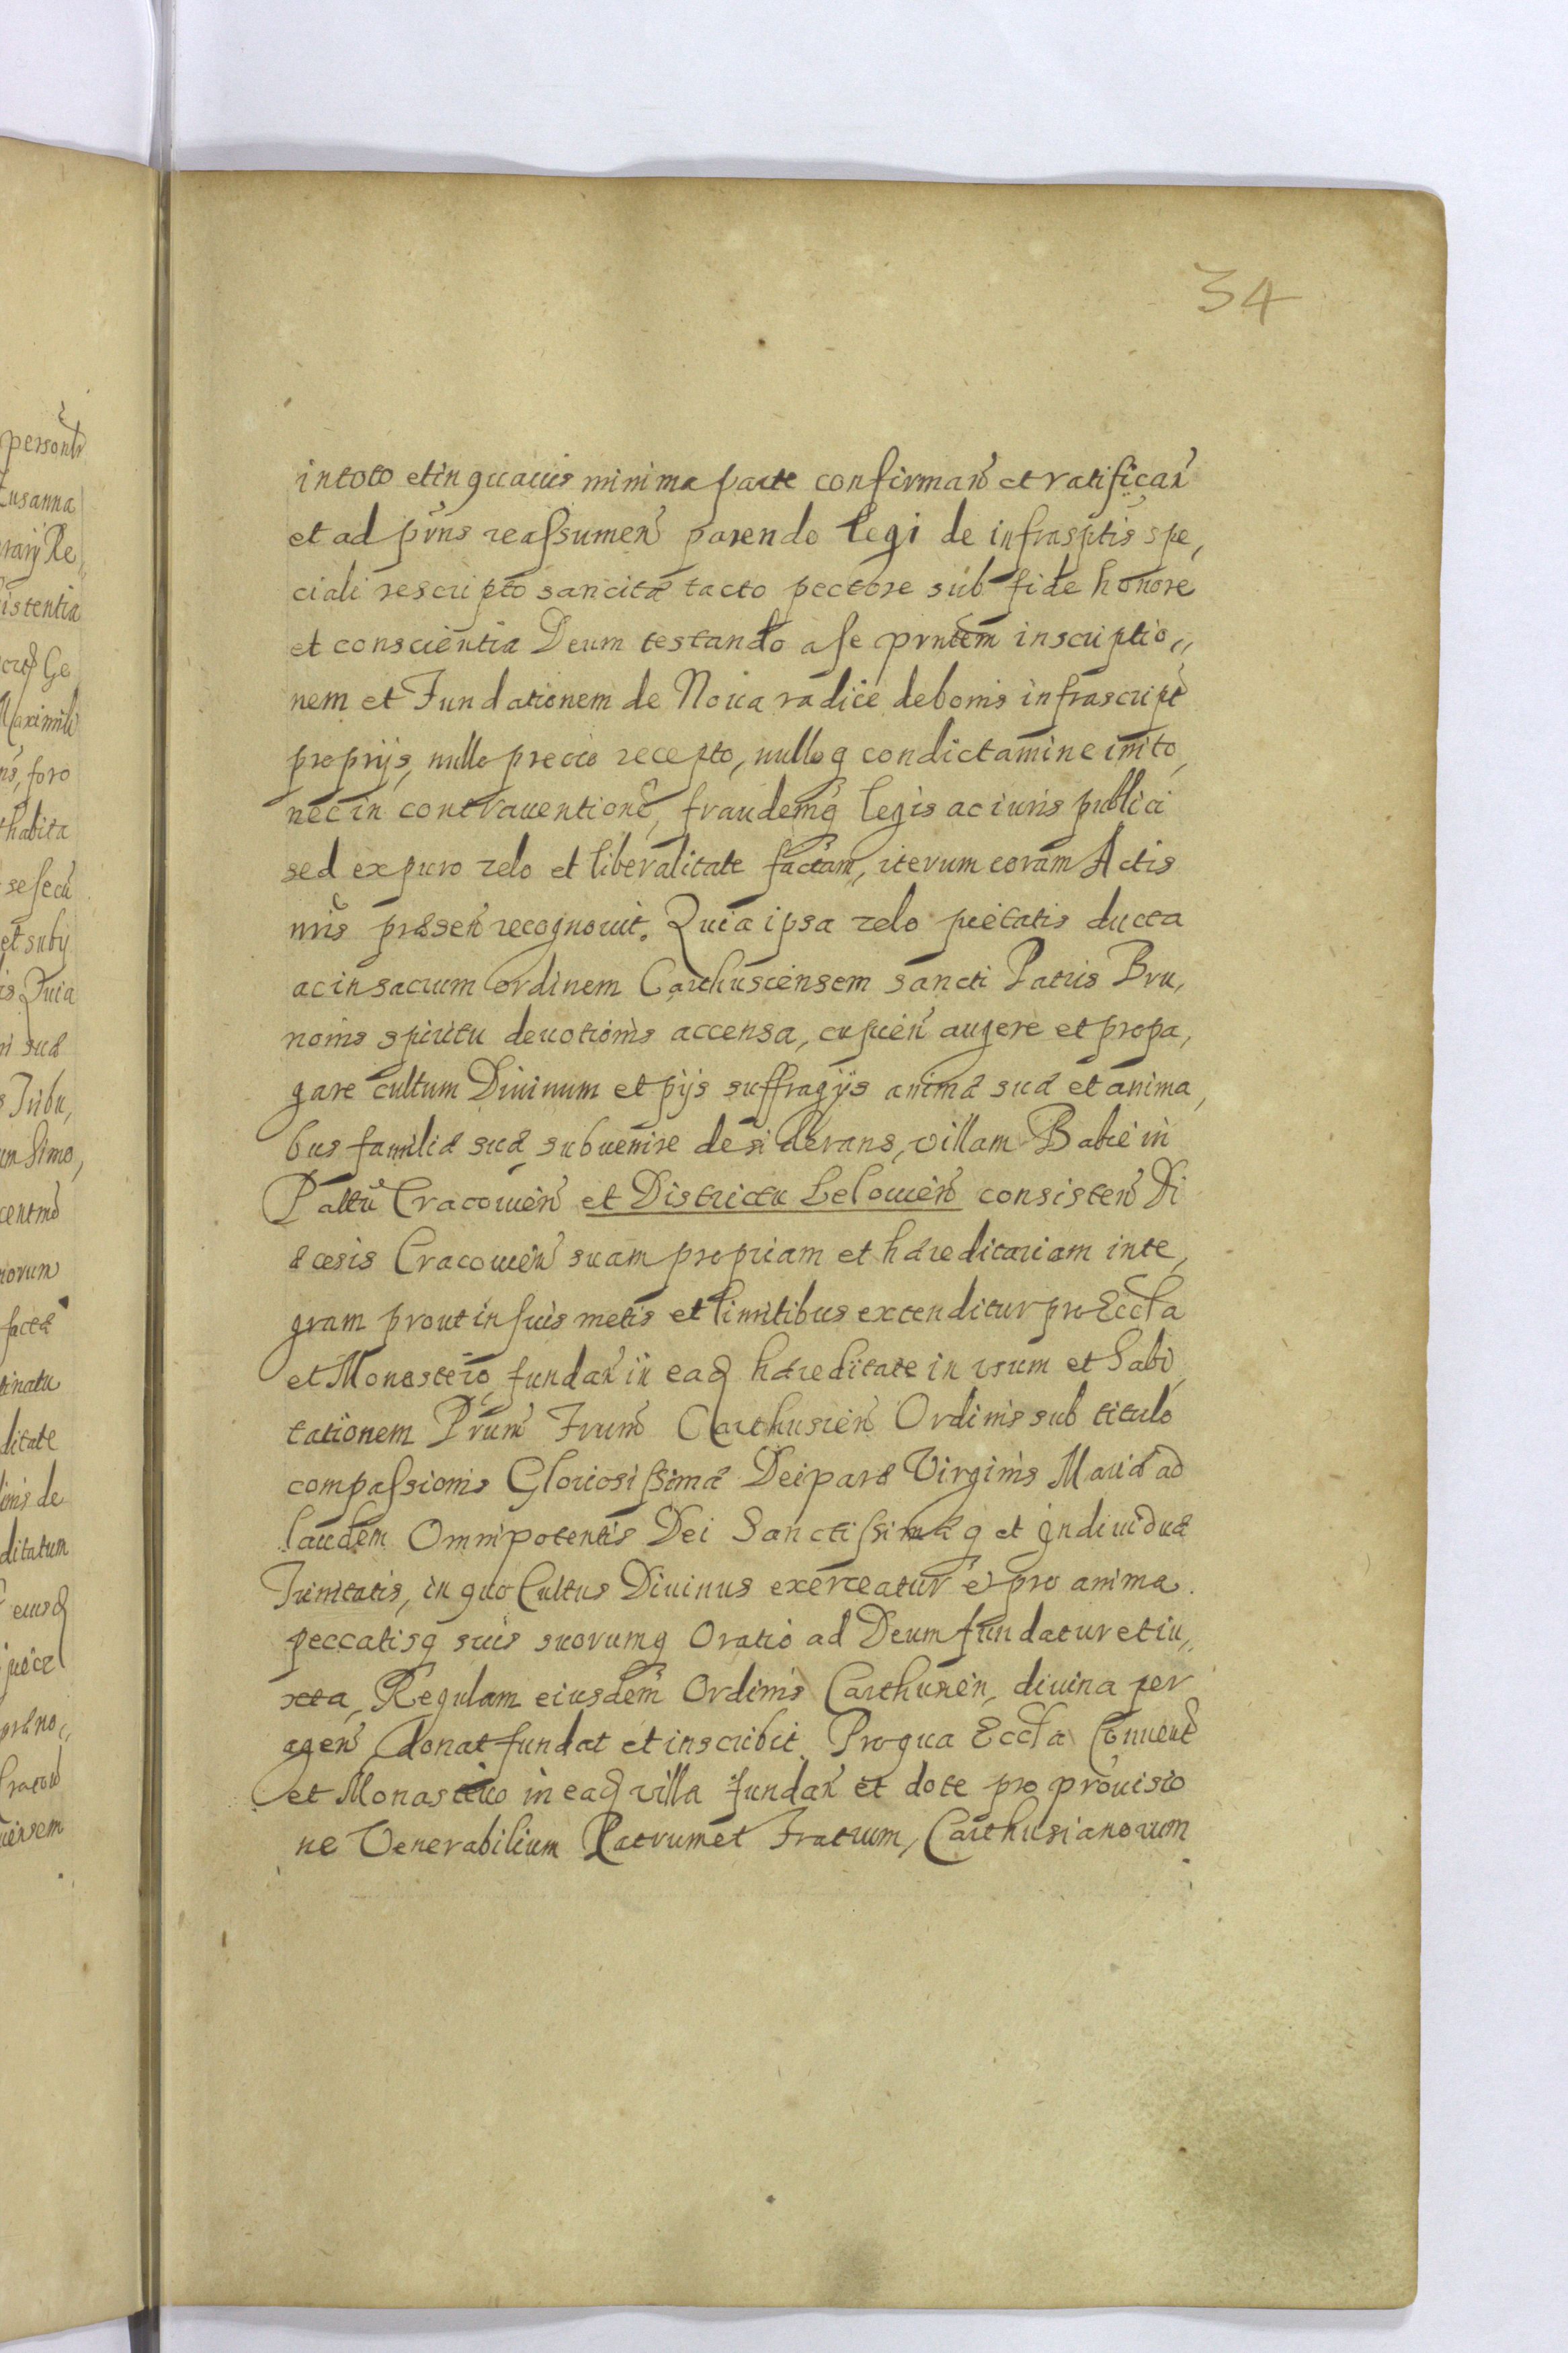 34
in toto et in quavis minima parte confirman̄ et ratifican̄
et ad pn̄s reassumen̄ parendo legi de infrasptis spe,
ciali rescripto sancitæ tacto pectore sub fide honore
et conscientia Deum testando a se pn̄tem inscriptio,,
nem et Fundationem de Noua radice de bonis infrascript̄
proprijs, nullo precio recepto, nulloq condictamine inito,
nec in contrauentionē, fraudemq legis ac iuris publici
sed ex puro zelo et liberalitate factam, iterum coram Actis
nr̄is præsen̄ recognouit. Quia ipsa zelo pietatis ducta
ac in sacrum ordinem Carthusiensem sancti Patris Bru,
nonis spiritu deuotionis accensa, cupien̄ augere et propa,
gare cultum Diuinum et pijs suffragijs animæ suæ et anima,
bus familiæ suæ subuenire desiderans, villam Babie in
Paltū Cracouien̄ et Districtu Lelouien̄ consisten̄ Di
æcesis Cracouien̄ suam propriam et hæreditariam inte,
gram prout in suis metis et limitibus extenditur pro Eccla
et Monasterō fundan̄ in eadq hæreditate in vsum et habi,
tationem Prum̄ Frum̄ Carthusien̄ Ordinis sub titulo
compassionis Gloriosissimæ Deiparæ Virginis Mariæ ad
laudem Omnipotentis Dei Sanctissimæq et Indiuiduæ
Trinitatis, in quo Cultus Diuinus exerceatur et pro anima
peccatisq suis suorumq Oratio ad Deum fundatur et iu,,
xta, Regulam eiusdem Ordinis Carthusien̄, diuina per
agen̄ donat fundat et inscribit. Pro qua Eccla Conuent̄
et Monasterio in eadq villa fundan̄ et dote pro prouisio
ne Venerabilium Patrum et Fratrum, Carthusianorum